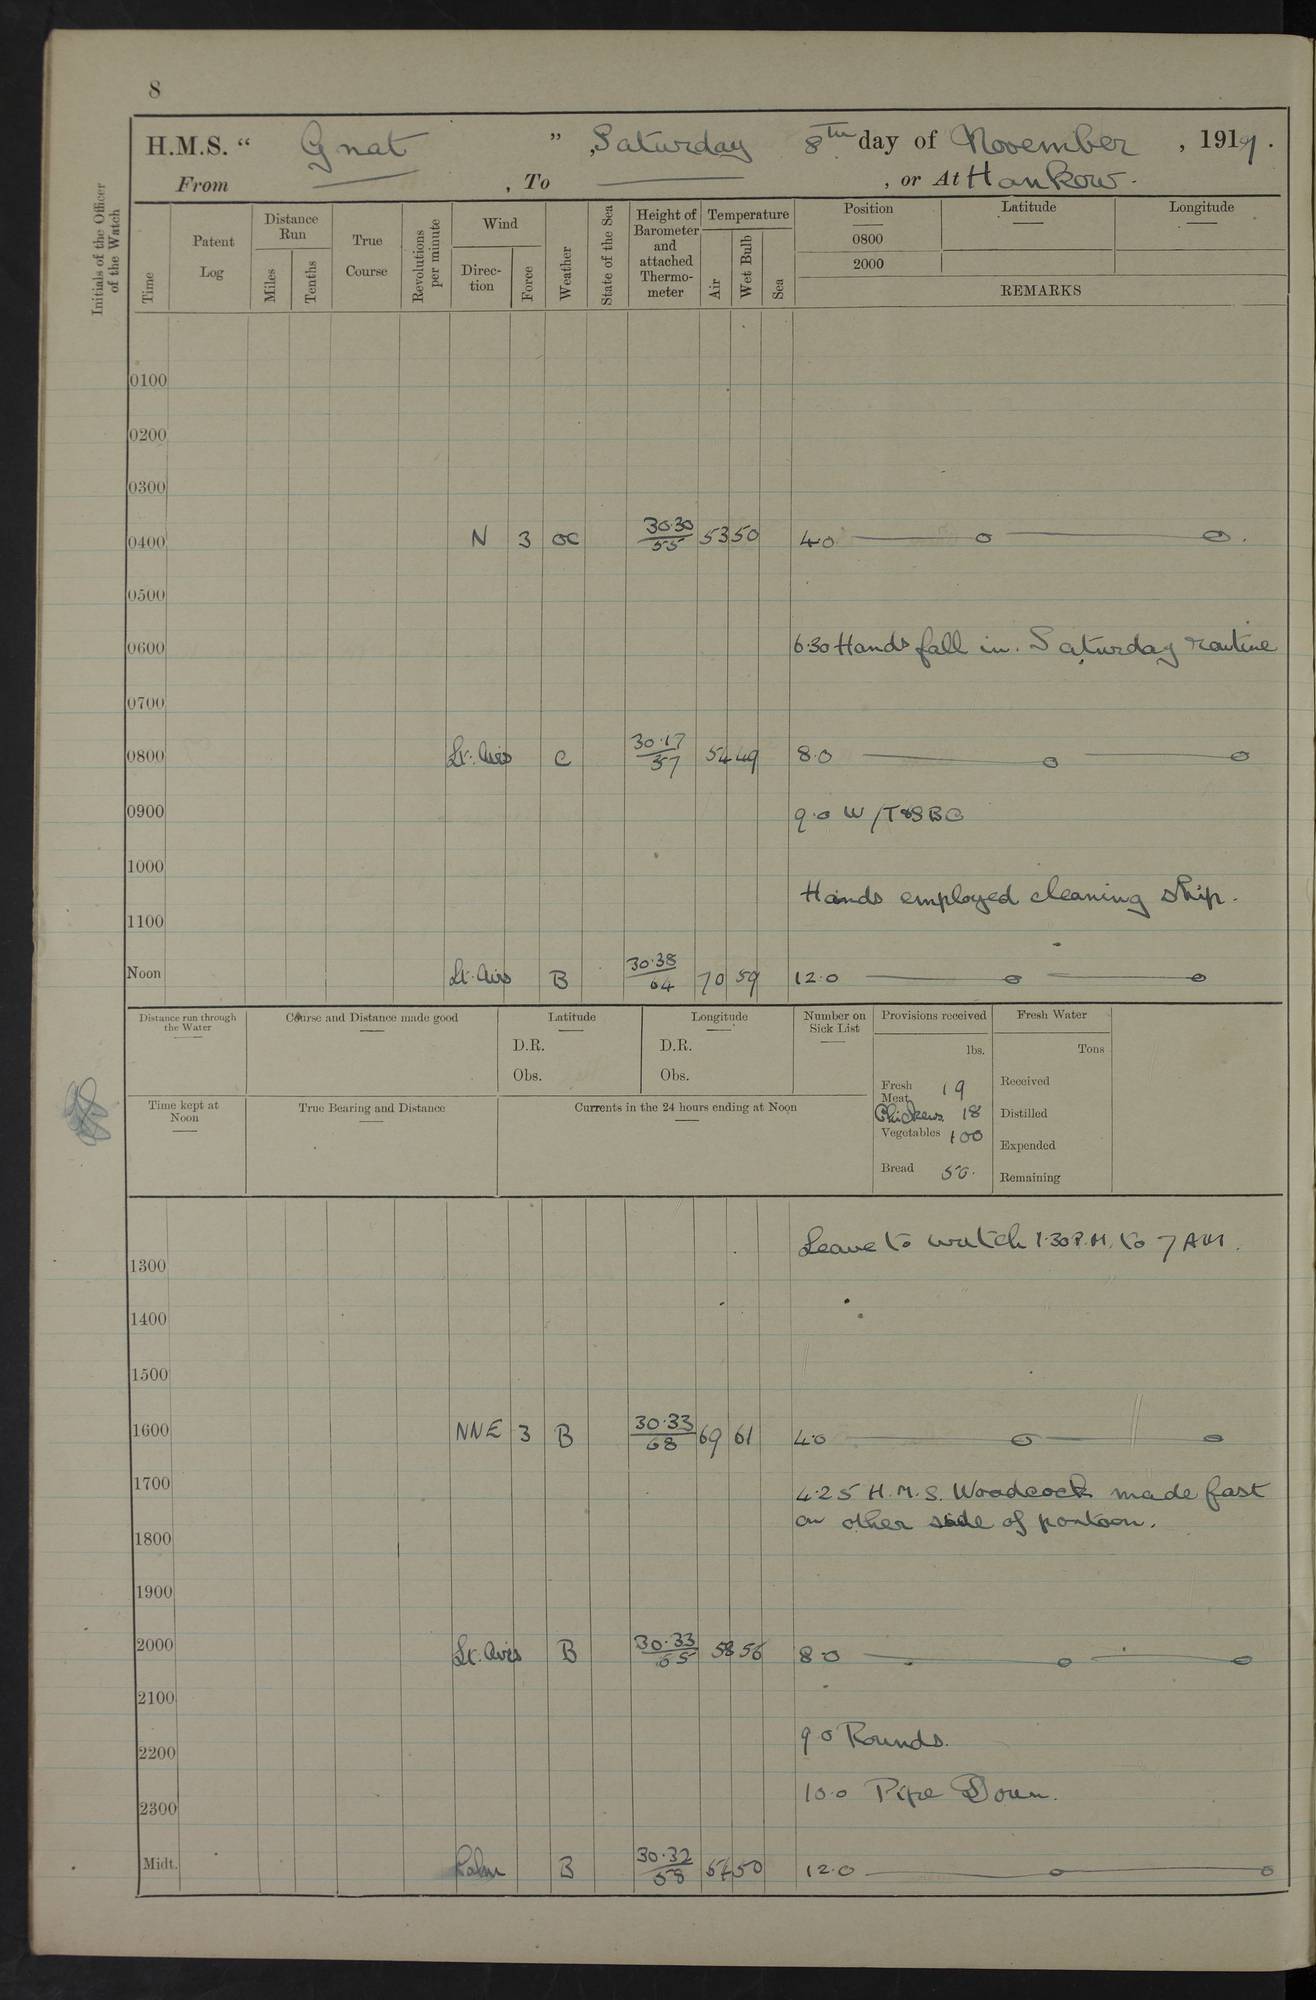 8
H.M.S. “ Gnat ” , Saturday 8th day of November , 1919 .
From , To , or At Hankow.
Initials of the Officer of the Watch
Time
Patent Log
Distance Run
Miles
Tenths
True Course
Revolutions per minute
Wind
Direc-tion
Force
Weather
State of the Sea
Height of Barometer and attached Thermo-meter
Temperature
Air
Wet Bulb
Sea
Position
0800
2000
Latitude
Longitude
REMARKS
0100
0200
0300
0400 N 3 oc 30.30/55 53 50 4.0 — o — o .
0500
0600 6.30 Hands fall in. Saturday routine
0700
0800 Lt. Airs C 30.17/57 54 49 8.0 — o — o
0900 9.0 W/T & SBC
1000
Hands employed cleaning ship.
1100
Noon Lt. Airs B 30.38/64 70 59 12.0 — o — o
Distance run through the Water
Course and Distance made good
Latitude
D.R.
Obs.
Longitude
D.R.
Obs.
Number on Sick List
Provisions received
lbs.
Fresh Meat 19
Chickens 18
Vegetables 100
Bread 50.
Fresh Water
Tons
Received
Distilled
Expended
Remaining
Time kept at Noon
True Bearing and Distance
Currents in the 24 hours ending at Noon
Leave to watch 1.30 P.M. to 7 AM.
1300
1400
1500
1600 NNE 3 B 30.33/68 69 61 4.0 — o — o
1700 4.25 H.M.S. Woodcock made fast
on other side of pontoon.
1800
1900
2000 Lt. Airs B 30.33/65 58 56 8.0 — o — o
2100
9.0 Rounds.
2200
10.0 Pipe Down.
2300
Midt. Calm B 30.32/58 54 50 12.0 — o — o